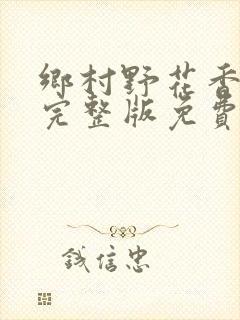 鄉村野花香
完整版免費
钱信忠